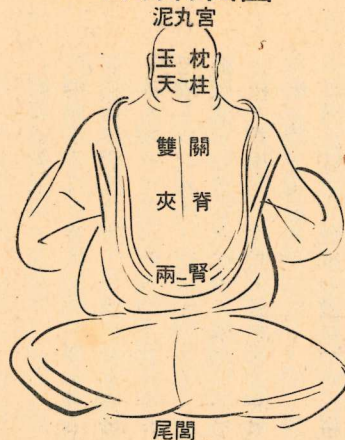 泥丸宮
玉枕
天柱
雙關
夾脊
兩腎
尾閭